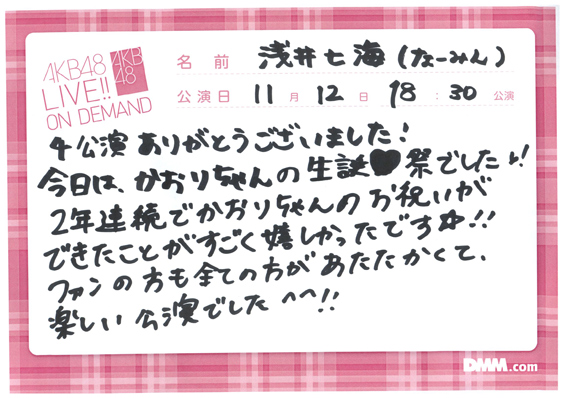 AKB48
LIVE!!
ON DEMAND
AKB
48
名前 浅井七海(なーみん)
公演日 11月12日 18:30公演
4公演ありがとうございました!
今日は、かおりちゃんの生誕♥祭でした♪!
2年連続でかおりちゃんのお祝いが
できたことがすごく嬉しかったです☆!!
ファンの方も全ての方があたたかくて、
楽しい公演でした^^!!
DMM.com